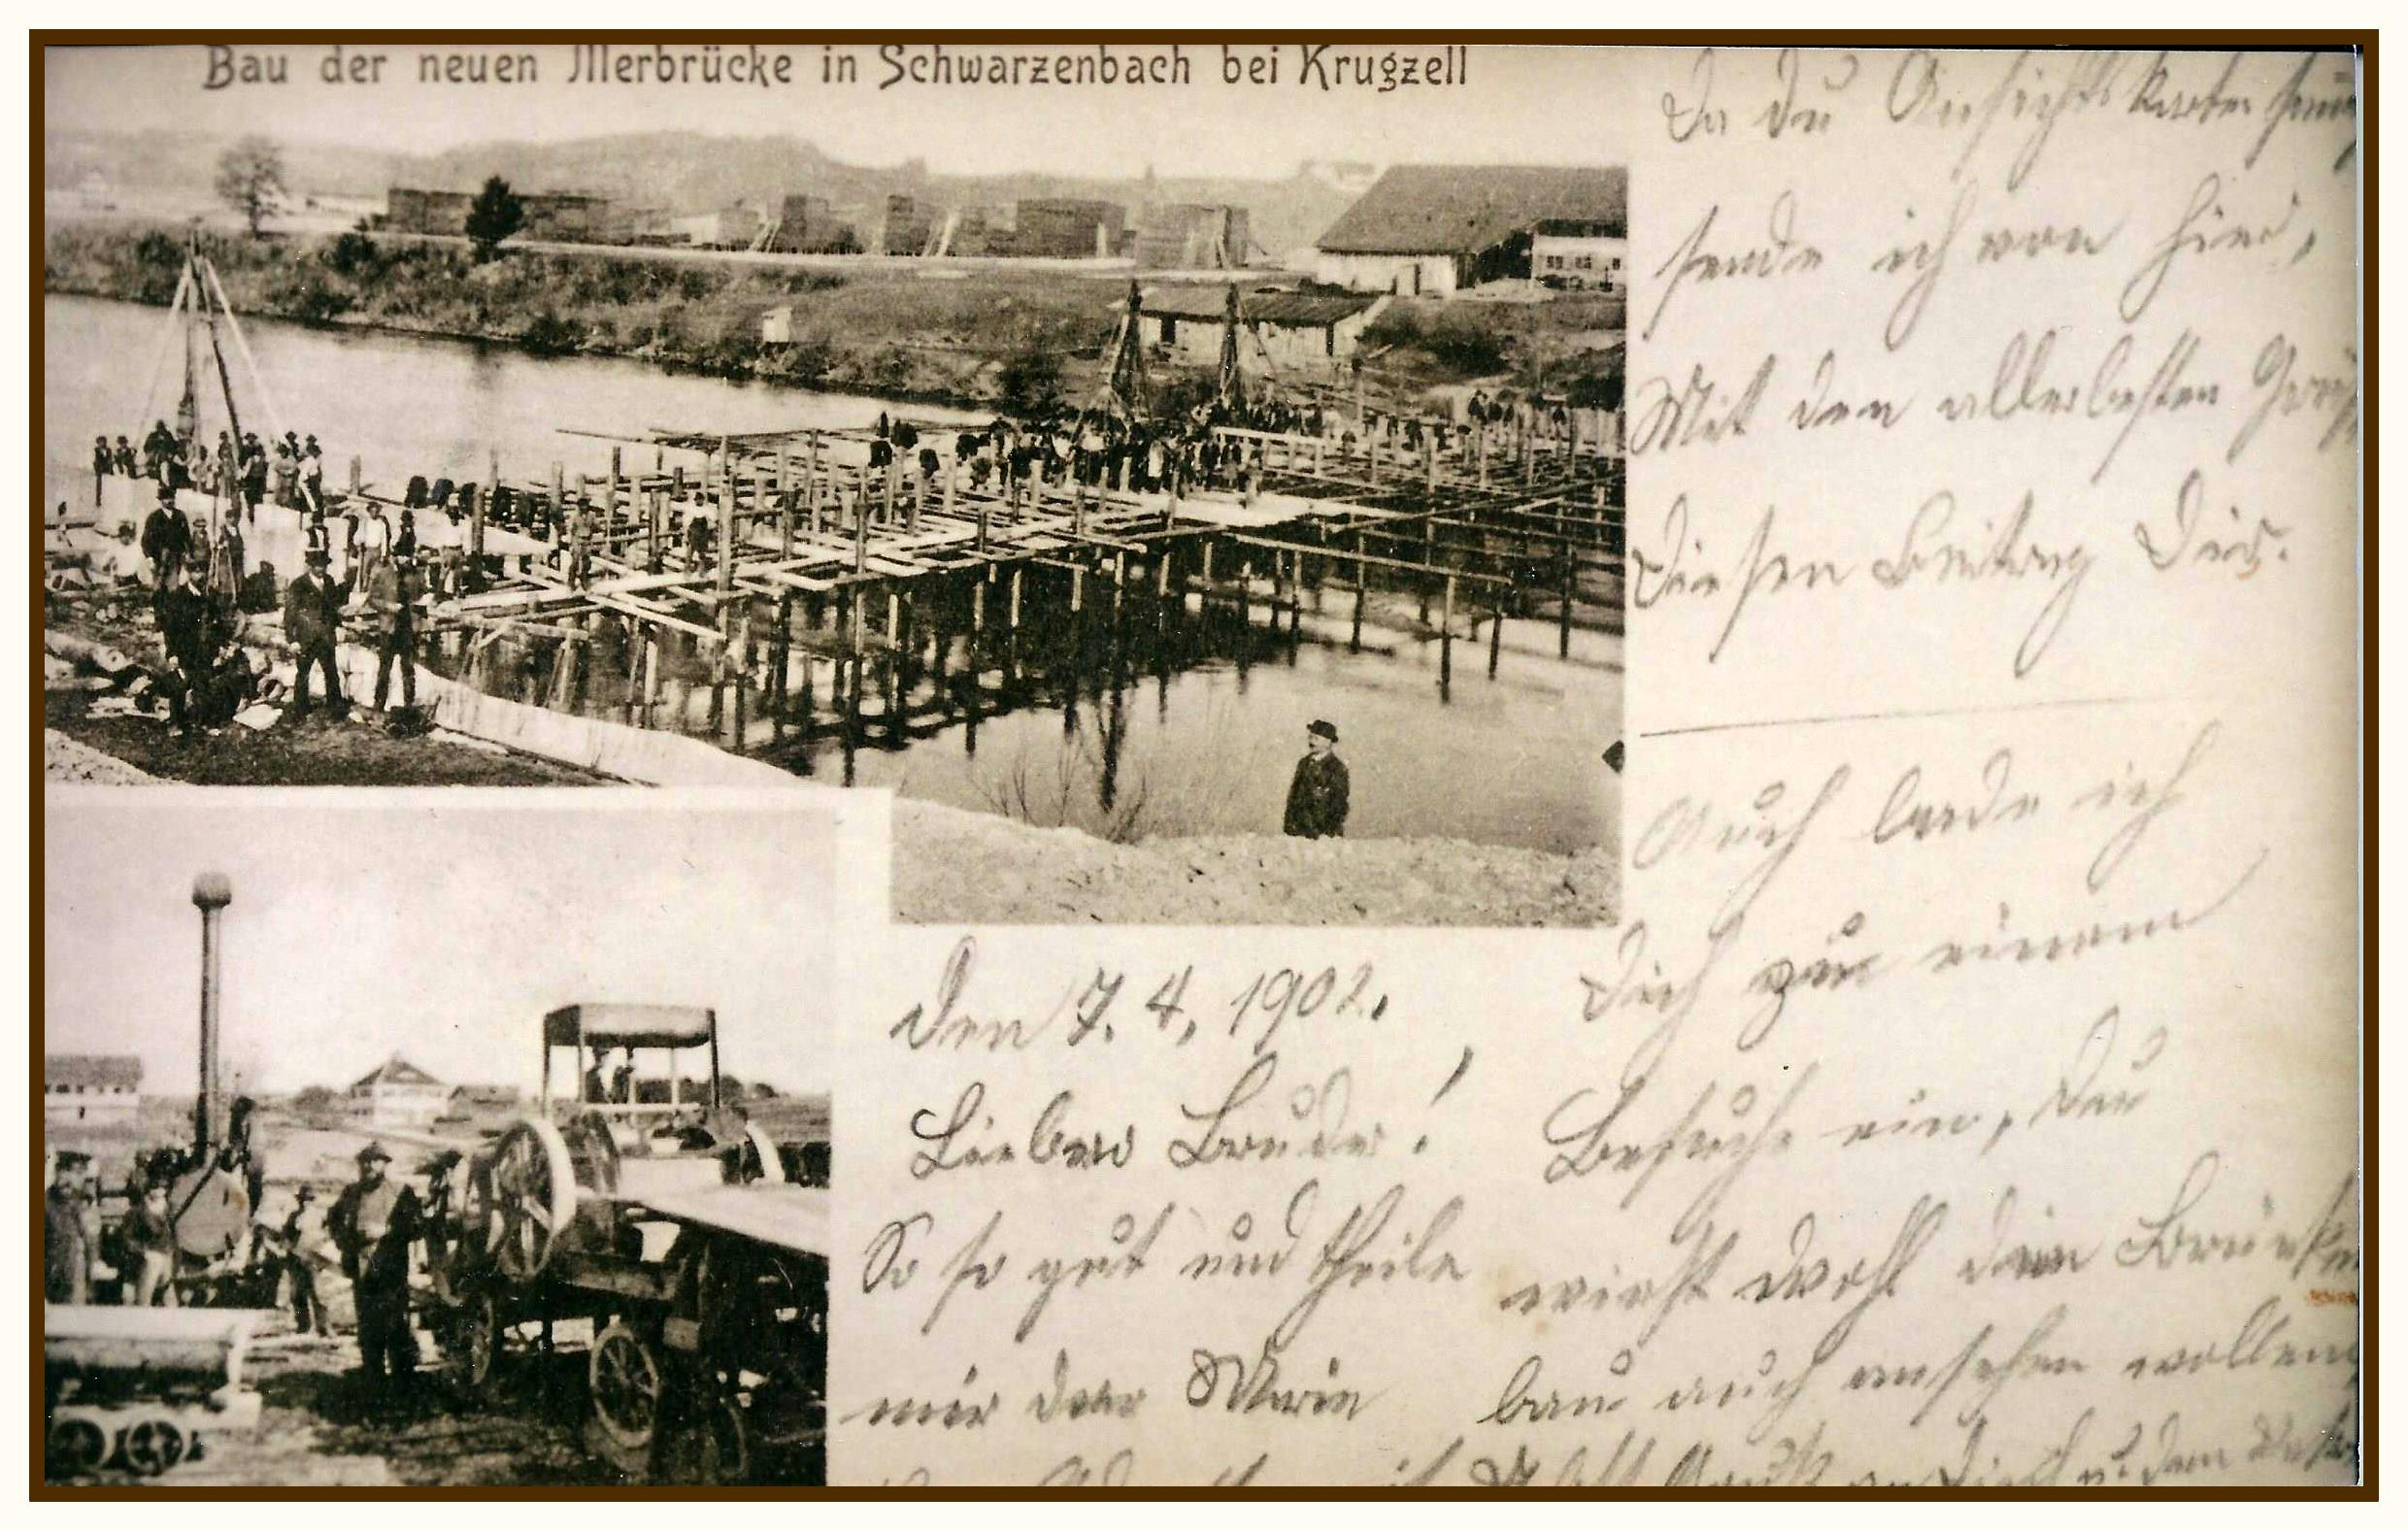 Bau der neuen Illerbrücke in Schwarzenbach bei Krugzell
Da du Ansichtskarten
sende ich von hier,
Mit den allerbesten
Diesen Beitrag Dir.
Auch lade ich
Dich zu einem
Besuche ein, Du
wirst wohl den Brücken
bau auch ansehen wollen
Gruß an Dich u. dem
Den 7. 4. 1902.
Lieber Bruder!
So so gut und theile
mir der Marie